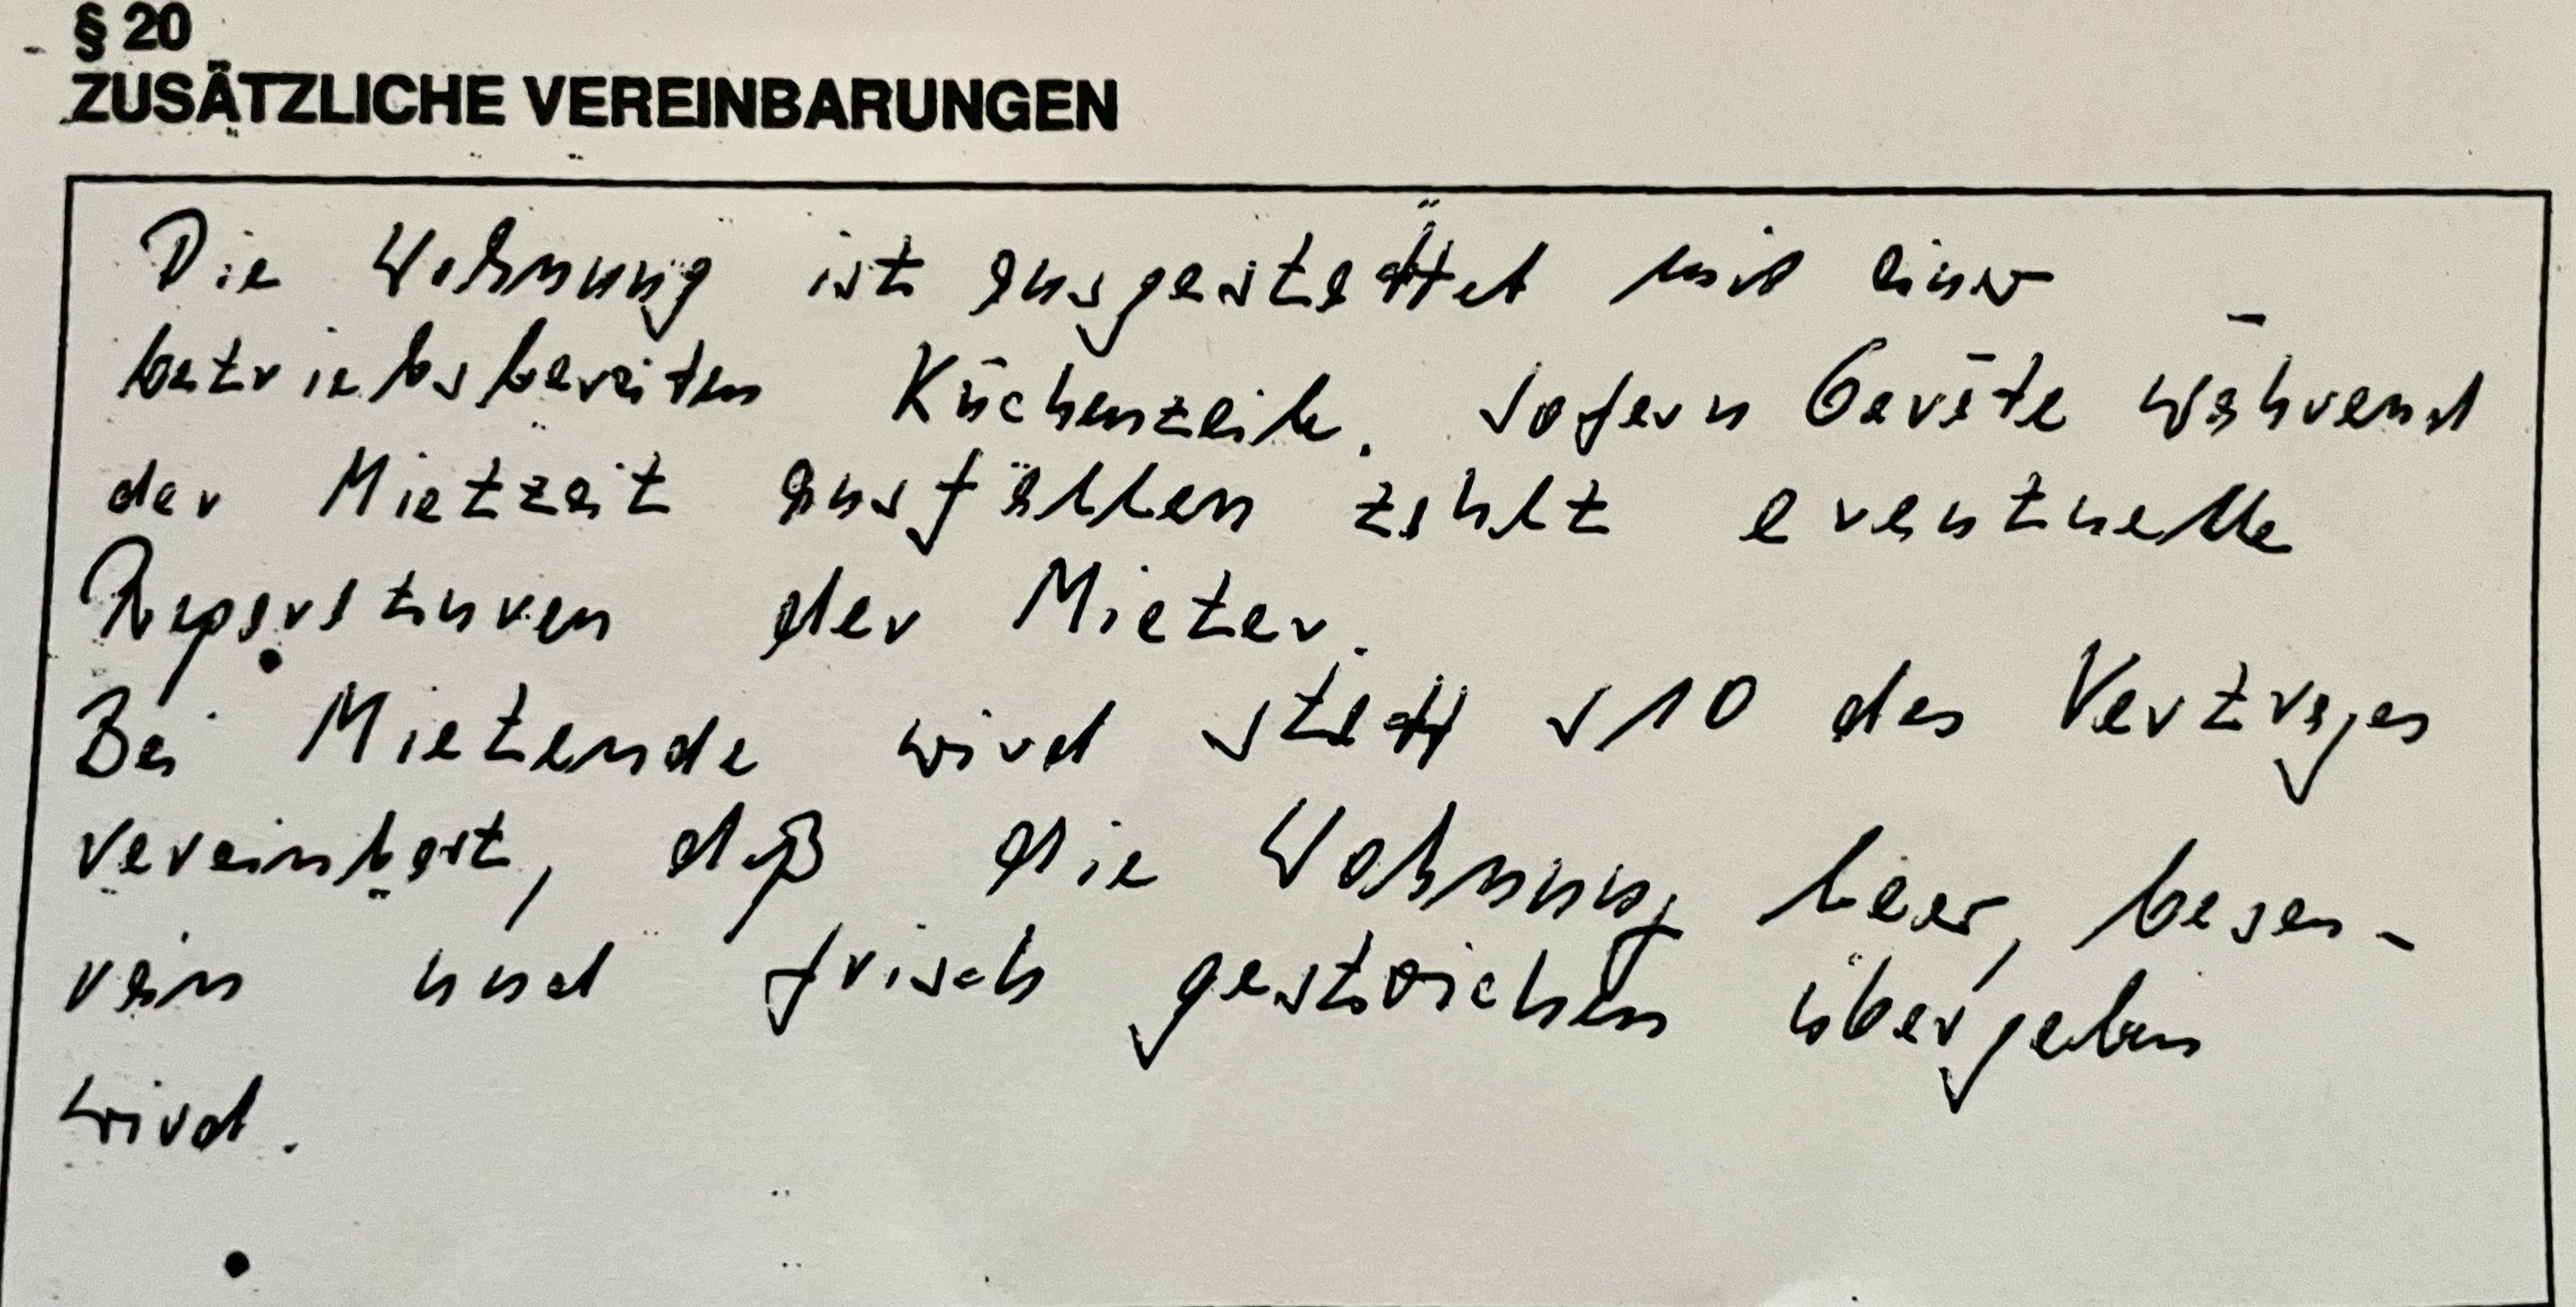 § 20
ZUSÄTZLICHE VEREINBARUNGEN
Die Wohnung ist ausgestattet mit einer
betriebsbereiten Küchenzeile. Sofern Geräte während
der Mietzeit ausfallen zahlt eventuelle
Reparaturen der Mieter.
Bei Mietende wird statt §10 des Vertrages
vereinbart, daß die Wohnung leer, besen-
rein und frisch gestrichen übergeben
wird.